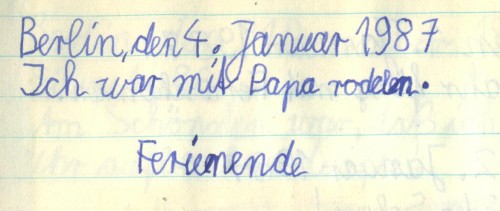 Berlin, den 4. Januar 1987
Ich war mit Papa rodeln.
Ferienende